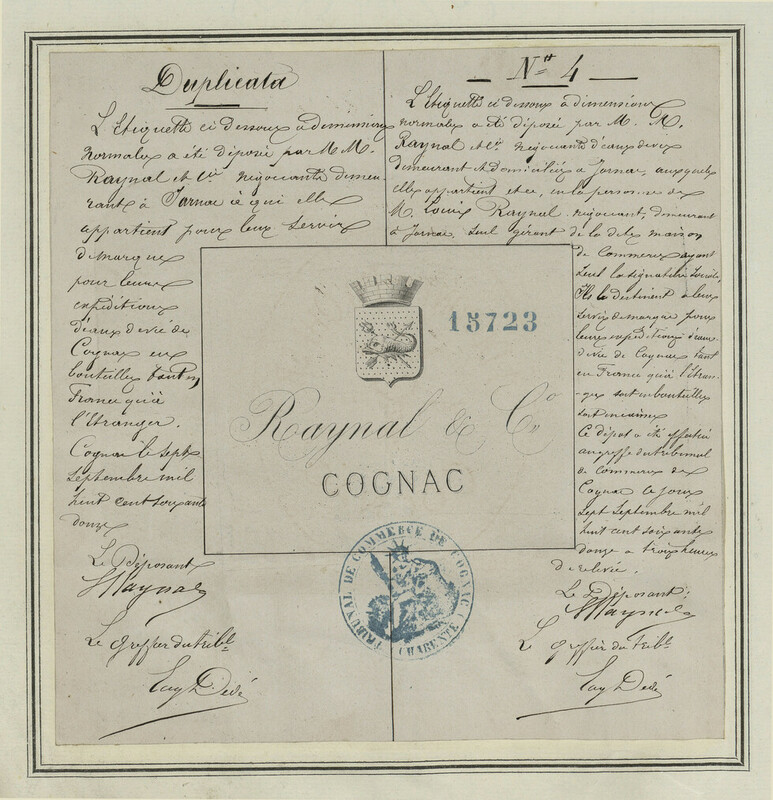 Duplicata
L'Etiquette ci dessous à dimensions
normales a été déposée par M. M.
Raynal et Cie négociants demeu-
rants à Jarnac à qui elle
appartient pour leur servir
de marque
pour leurs
expéditions
d'eaux de vie de
Cognac en
bouteilles tant en
France qu'à
l'étranger.
Cognac le sept
septembre mil
huit cent soixante
douze
Le Déposant
Raynal
Le Greffier du tribl
Nº 4
L'Etiquette ci dessous à dimensions
normales a été déposée par M. M.
Raynal et Cie négociants d'eaux de vie
demeurant et domiciliés à Jarnac auxquels
elle appartient et ce, en la personne de
M. Louis Raynal négociant, demeurant
à Jarnac, seul gérant de la dite maison
de Commerce ayant
seul la signature sociale,
Ils la destinent à leur
servir de marque pour
leurs expéditions d'eaux
de vie de Cognac tant
en France qu'à l'étran-
-ger soit en bouteilles
soit en caisses
Ce dépôt a été effectué
au greffe du tribunal
de Commerce de
Cognac le jour
sept septembre mil
huit cent soixante
douze a trois heures
de relevée.
Le Déposant:
Raynal
Le Greffier du tribl
15723
Raynal & Co
COGNAC
TRIBUNAL DE COMMERCE DE COGNAC
CHARENTE